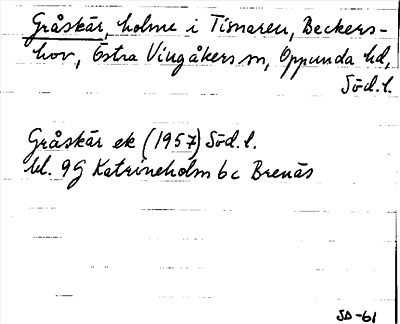 Gråskär, holme i Tisnaren, Beckers-
hov, Östra Vingåkers sn, Oppunda hd,
Söd.l.
Gråskär ek (1957) Söd.l.
bl. 9G Katrineholm 6c Brenäs
SD-61